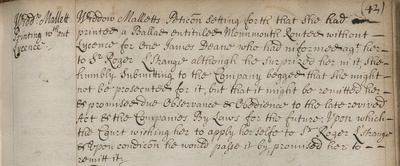 (42)
Widd: Mallett
Printing wthout
Lycence.
Widdow Malletts Peticon setting forth that She had
printed a Ballad entituled Monmouth Routed without
Lycence for one James Deane who had informed agt her
to Sr Roger L'Strange although he Surprized her in it, She
humbly Submitting to the Company begged that she might
not be prosecuted for it, but that it might be remitted her
& promised due Observance & Obedience to the late revived
Act & the Companies By Laws for the future, Upon which
the Court wishing her to apply her selfe to Sr Roger L'Strange
& Upon condicon he would passe it by, promised her to
remitt it;